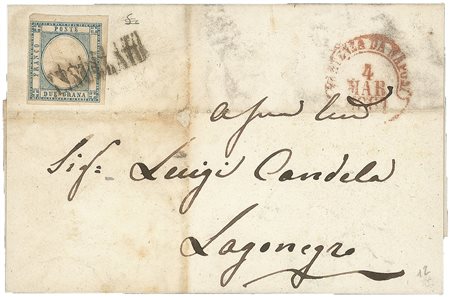 FRANCO
POSTE
DUE GRANA
ANNULLATO
4
MAR
Sig: Luigi Candela
Lagonegro
12